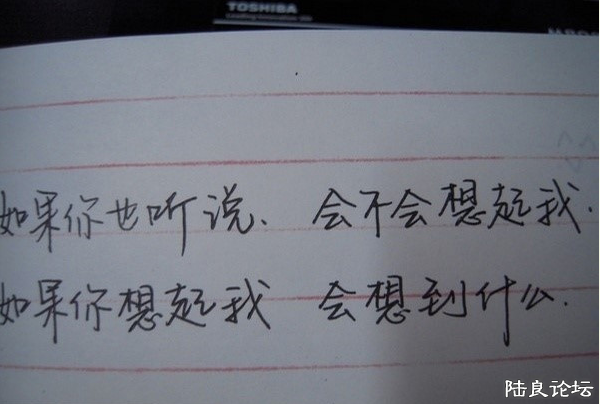 TOSHIBA
Leading Innovation >>>
如果你也听说、 会不会想起我.
如果你想起我 会想到什么.
陆良论坛